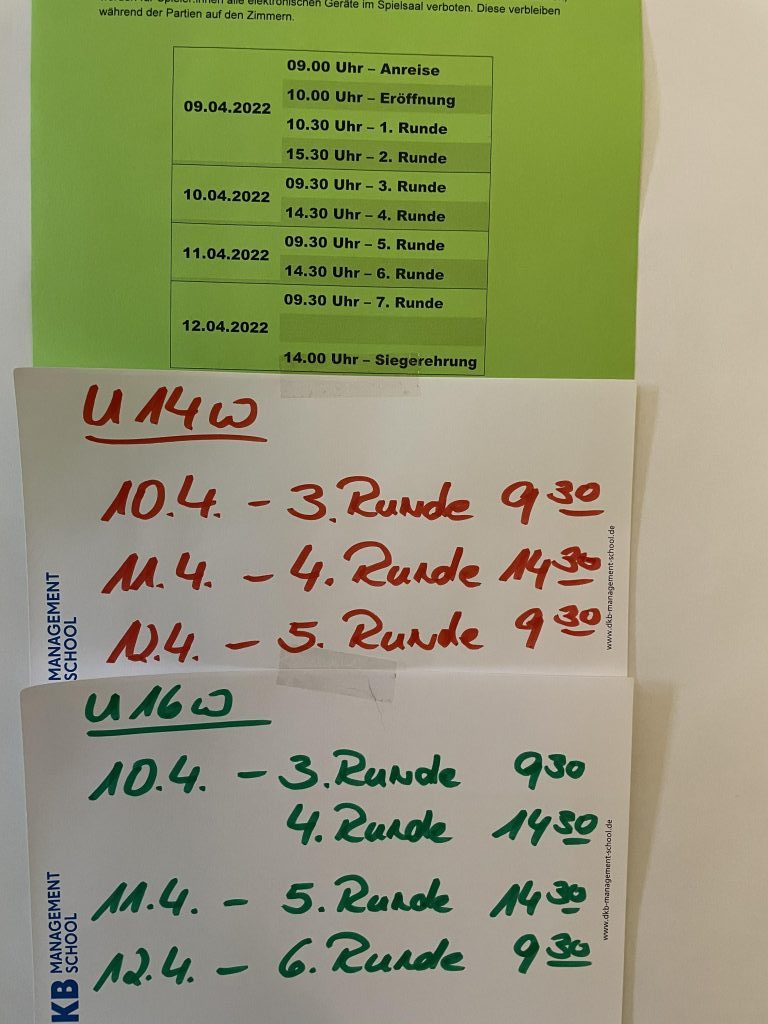 für Spieler:innen alle elektronischen Geräte im Spielsaal verboten. Diese verbleiben
während der Partien auf den Zimmern.
09.04.2022
09.00 Uhr – Anreise
10.00 Uhr – Eröffnung
10.30 Uhr – 1. Runde
15.30 Uhr – 2. Runde
10.04.2022
09.30 Uhr – 3. Runde
14.30 Uhr – 4. Runde
11.04.2022
09.30 Uhr – 5. Runde
14.30 Uhr – 6. Runde
12.04.2022
09.30 Uhr – 7. Runde
14.00 Uhr – Siegerehrung
U14w
10.4. – 3. Runde 9 30
11.4. – 4. Runde 14 30
12.4. – 5. Runde 9 30
MANAGEMENT
SCHOOL
www.dkb-management-school.de
U16w
10.4. – 3. Runde 9 30
4. Runde 14 30
11.4. – 5. Runde 14 30
12.4. – 6. Runde 9 30
KB MANAGEMENT
SCHOOL
www.dkb-management-school.de